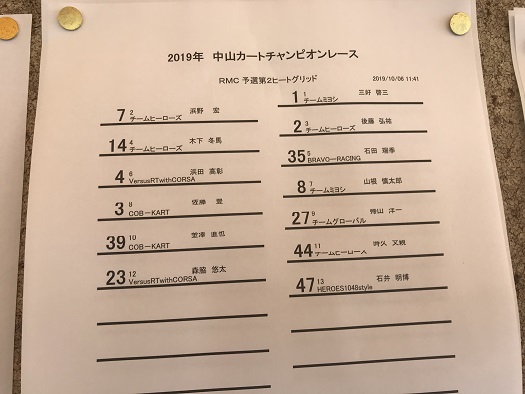 2019年 中山カートチャンピオンレース
RMC 予選第2ヒートグリッド
2019/10/06 11:41
1 1 三好 啓三
チームミヨシ
7 2 浜野 宏
チームヒーローズ
2 3 後藤 弘祐
チームヒーローズ
14 4 木下 冬馬
チームヒーローズ
35 5 石田 瑞季
BRAVO-RACING
4 6 浜田 嘉彰
VersusRTwithCORSA
8 7 山根 慎太郎
チームミヨシ
3 8 佐藤 豊
COB-KART
27 9 洋一
チームグローバル
39 10 直也
COB-KART
44 11 時久
チームヒーローズ
23 12 森脇 悠太
VersusRTwithCORSA
47 13 石井 明博
HEROES1048style